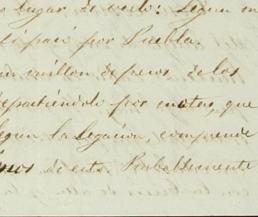 lugar de verlo: Segun
pasó por Puebla.
un millon de pesos, de los
repartiéndolo por meses, que
segun la Legacion, comprende
de esta. Probablemente